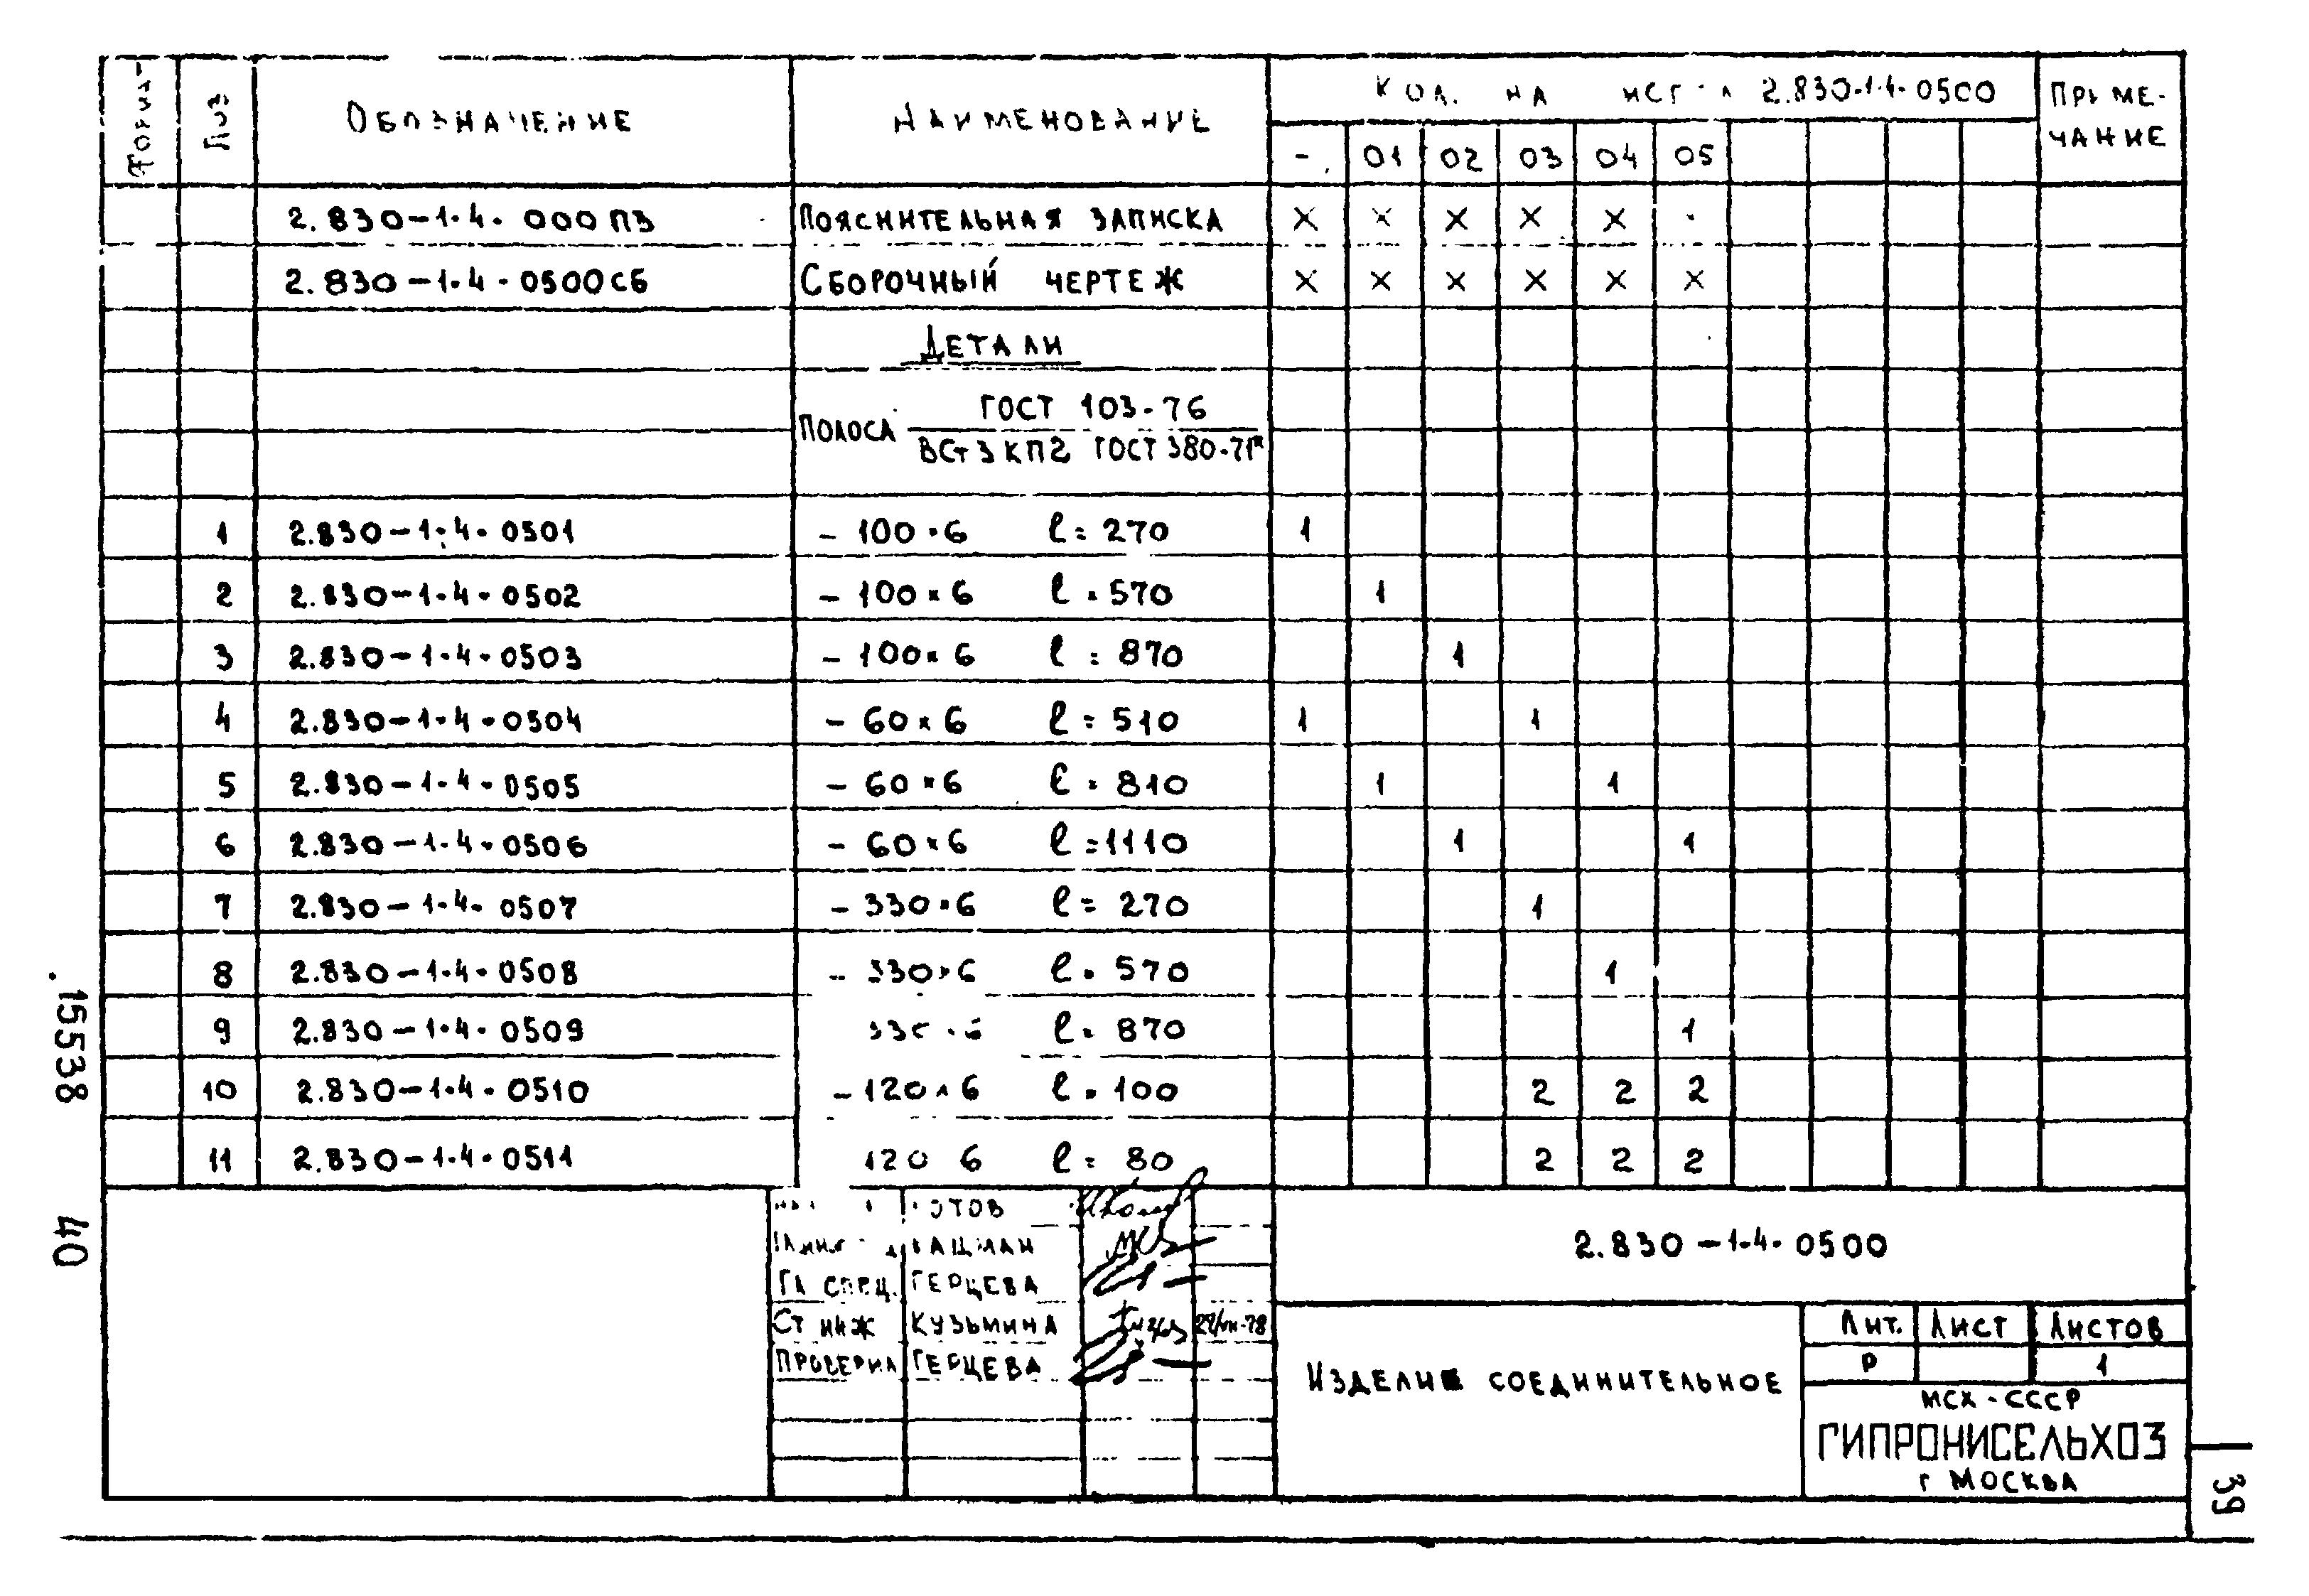 Формат Поз Обозначение Наименование Кол. на исполн 2.830-1.4-0500 Приме-
чание
- 01 02 03 04 05
2.830-1.4-000ПЗ Пояснительная записка × × × × ×
2.830-1.4-0500СБ Сборочный чертеж × × × × × ×
Детали
Полоса ГОСТ 103-76
ВСт3кп2 ГОСТ 380-71*
1 2.830-1.4-0501 - 100×6 ℓ=270 1
2 2.830-1.4-0502 - 100×6 ℓ=570 1
3 2.830-1.4-0503 - 100×6 ℓ=870 1
4 2.830-1.4-0504 - 60×6 ℓ=510 1 1
5 2.830-1.4-0505 - 60×6 ℓ=810 1 1
6 2.830-1.4-0506 - 60×6 ℓ=1110 1 1
7 2.830-1.4-0507 - 330×6 ℓ=270 1
8 2.830-1.4-0508 - 330×6 ℓ=570 1
9 2.830-1.4-0509 330×6 ℓ=870 1
10 2.830-1.4-0510 - 120×6 ℓ=100 2 2 2
11 2.830-1.4-0511 120 6 ℓ=80 2 2 2
Гл спец. Герцева
Ст инж Кузьмина
Проверил Герцева
2.830-1.4-0500
Изделие соединительное
Лит. Лист Листов
Р 1
МСХ-СССР
ГИПРОНИСЕЛЬХОЗ
г Москва
15538 40
39